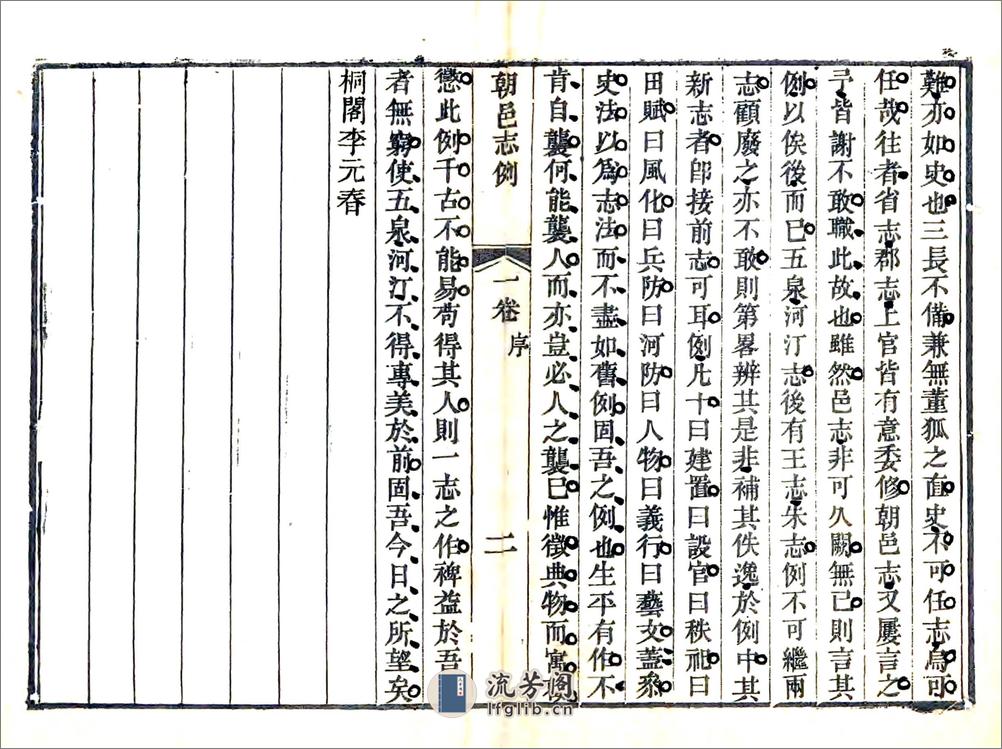 難亦如史也三長不備兼無董狐之直史不可任志烏可
任哉往者省志郡志上官皆有意委修朝邑志又屢言之
予皆謝不敢職此故也雖然邑志非可久闕無已則言其
例以俟後而已五泉河汀志後有王志朱志例不可繼兩
志顧廢之亦不敢則第畧辨其是非補其佚逸於例中其
新志者卽接前志可耳例凡十曰建置曰設官曰秩祀曰
田賦曰風化曰兵防曰河防曰人物曰義行曰藝文蓋叅
史法以爲志法而不盡如舊例固吾之例也生平有作不
肯自襲何能襲人而亦豈必人之襲已惟徵典物而寓
朝邑志例 一卷 序 二
懲此例千古不能易苟得其人則一志之作裨益於吾
者無窮使五泉河汀不得專美於前固吾今日之所望矣
桐閣李元春
流芳閣
lfglib.cn